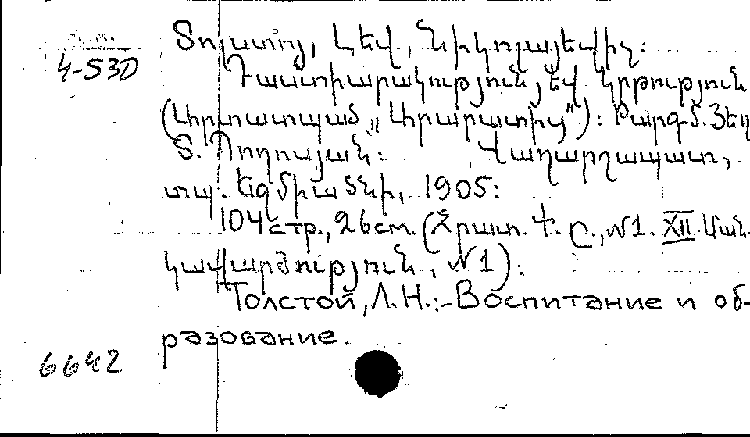 Տոլստոյ, Լեվ, Նիկոլայեվիչ:
4-530
Դաստիարակություն յեվ կրթություն
(Արտատպած „Արարատից"): Թարգմ. Յեղ
Տ. Պողոսյան: Վաղարշապատ,
տպ. Եջմիածնի, 1905:
104 стр., 26 см. (Հրատ. Է. Ը., №1. XII. Ման.
կավարժություն, №1):
Толстой, Л.Н.:-Воспитание и об-
разование.
6642